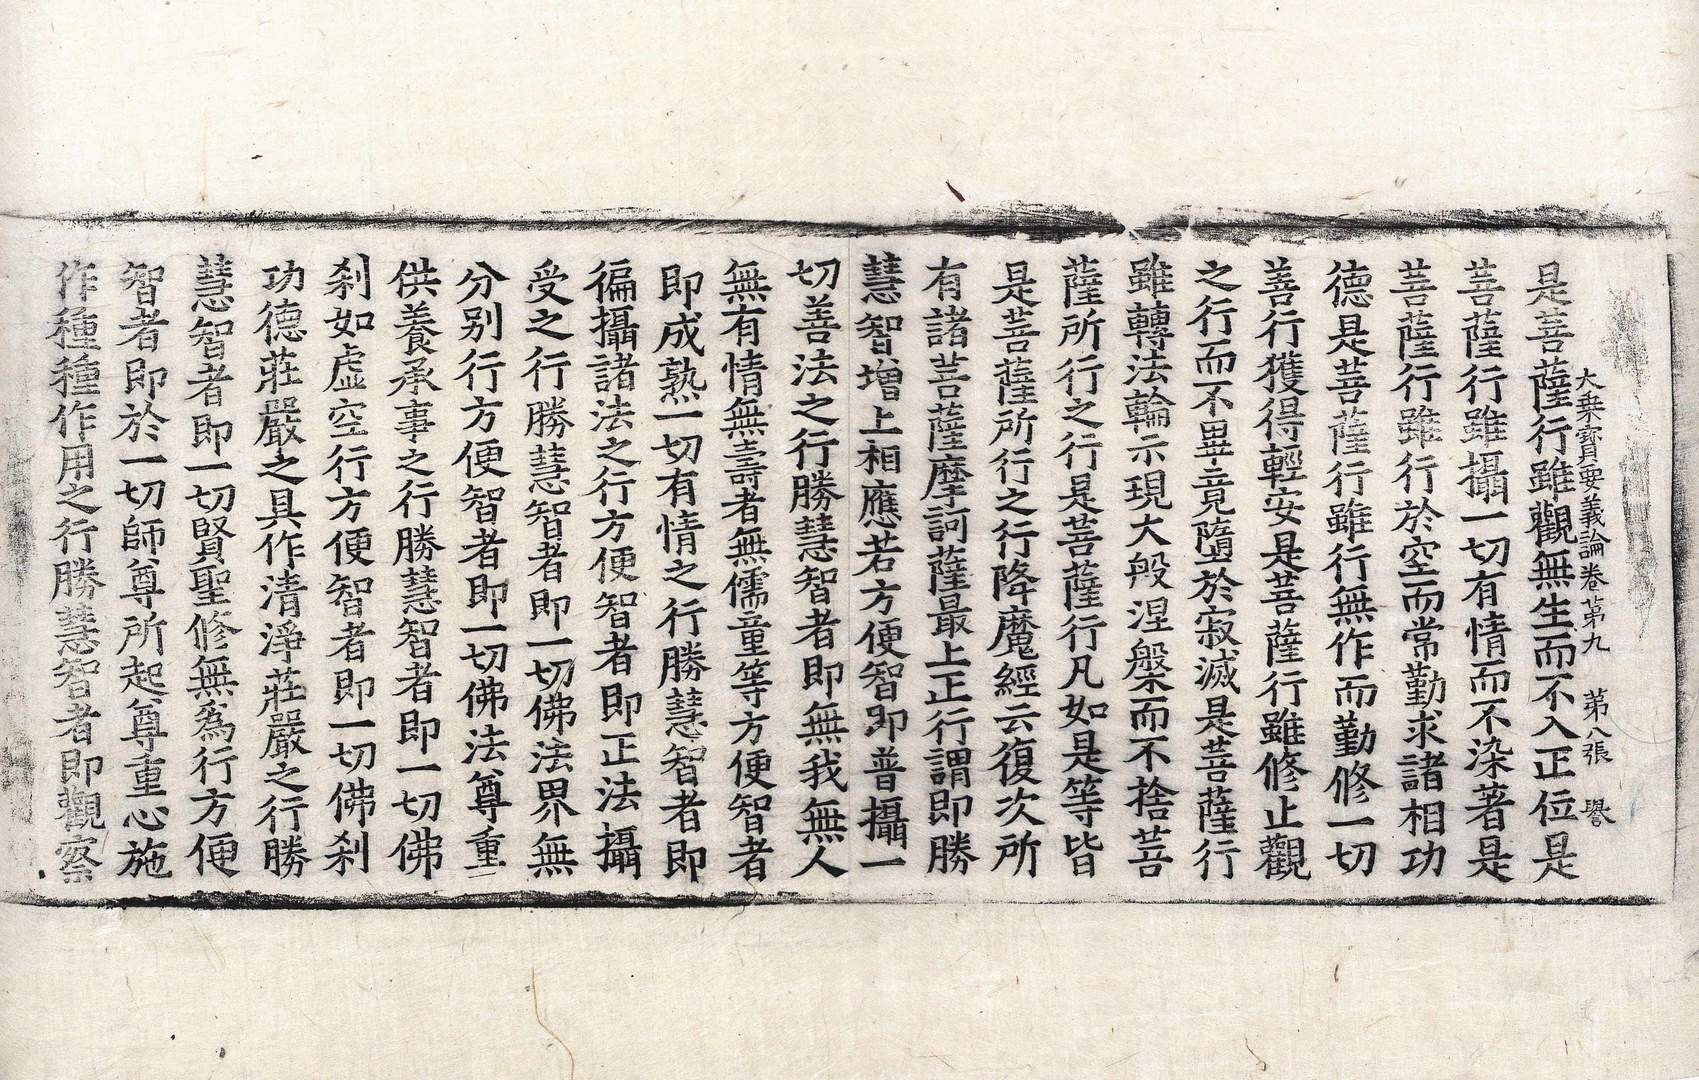 大乗寶要義論卷第九　第八張　譽
是菩薩行雖觀無生而不入正位是
菩薩行雖攝一切有情而不染著是
菩薩行雖行於空而常勤求諸相功
德是菩薩行雖行無作而勤修一切
善行獲得輕安是菩薩行雖修止觀
之行而不畢竟墮於寂滅是菩薩行
雖轉法輪示現大般涅槃而不捨菩
薩所行之行是菩薩行凡如是等皆
是菩薩所行之行降魔經云復次所
有諸菩薩摩訶薩最上正行謂即勝
慧智增上相應若方便智即普攝一
切善法之行勝慧智者即無我無人
無有情無壽者無儒童等方便智者
即成熟一切有情之行勝慧智者即
徧攝諸法之行方便智者即正法攝
受之行勝慧智者即一切佛法界無
分別行方便智者即一切佛法尊重
供養承事之行勝慧智者即一切佛
刹如虛空行方便智者即一切佛刹
功德莊嚴之具作清淨莊嚴之行勝
慧智者即一切賢聖修無爲行方便
智者即於一切師尊所起尊重心施
作種種作用之行勝慧智者即觀察